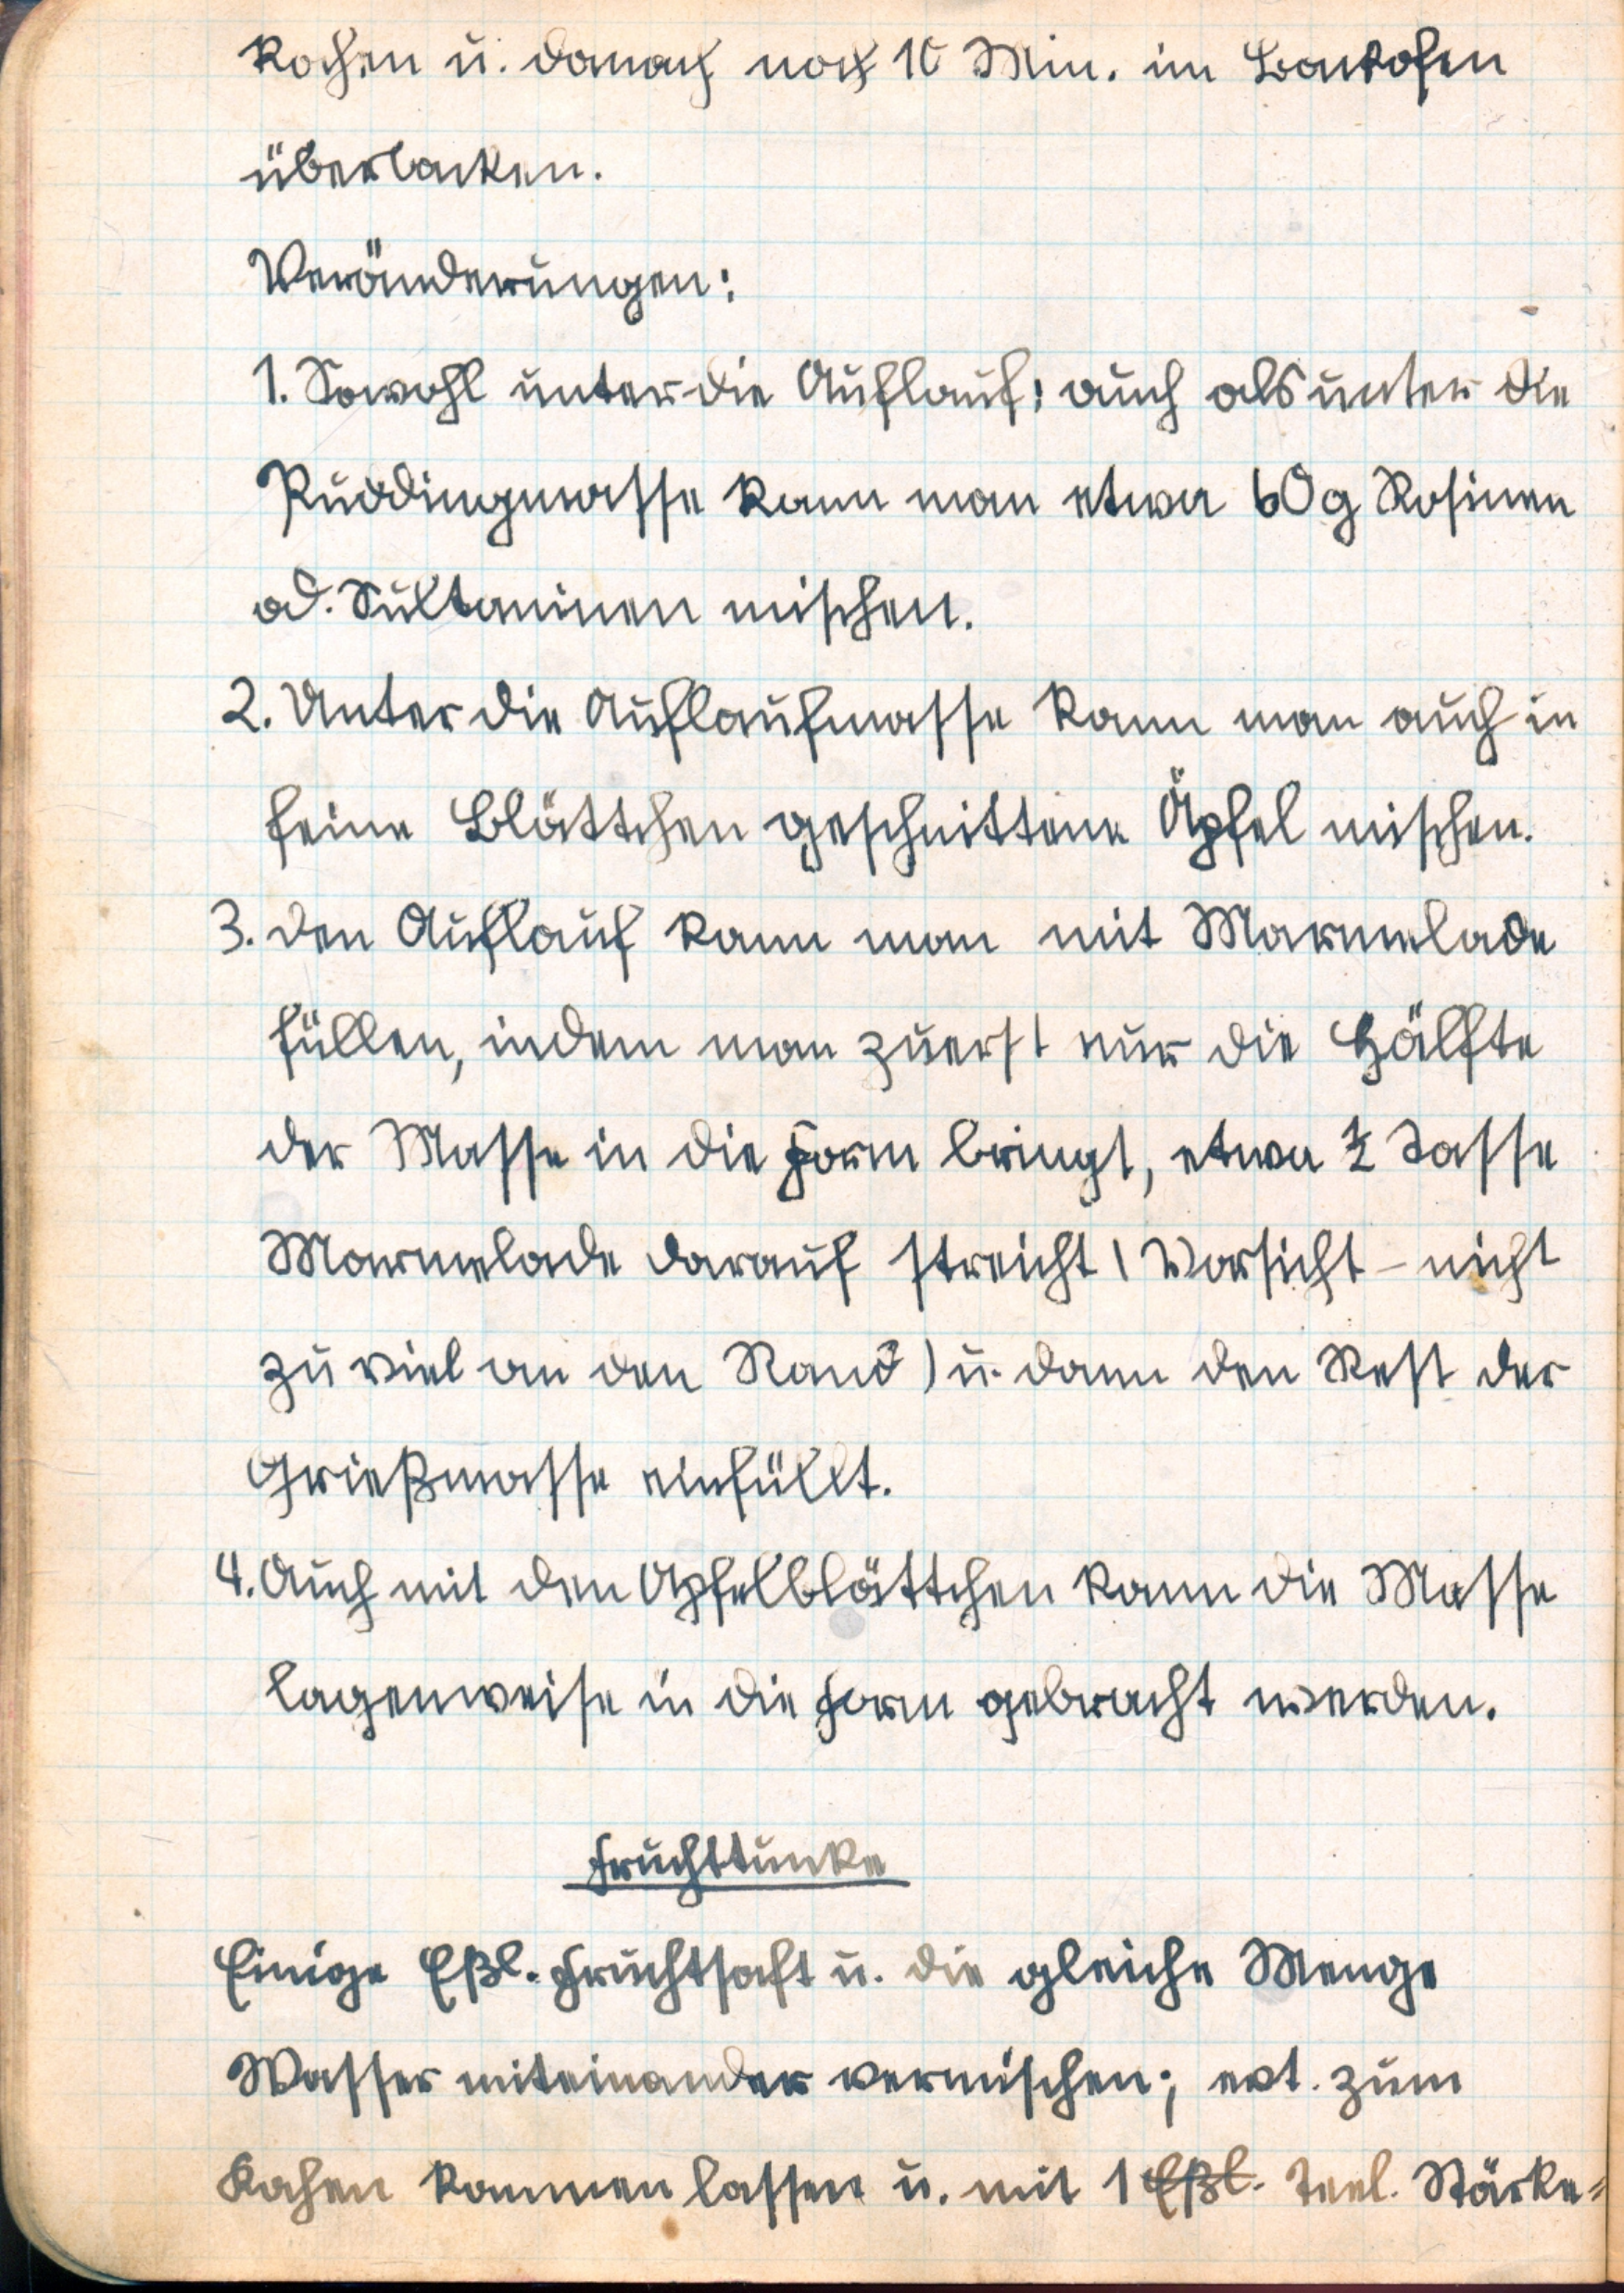 kochen u. danach noch 10 Min. im Backofen
überbacken.
Veränderungen:
1. Sowohl unter die Auflauf: auch als unter die
Puddingmasse kann man etwa 60g Rosinen
od. Sultaninen mischen.
2. Unter die Auflaufmasse kann man auch in
feine Blättchen geschnittene Äpfel mischen.
3. den Auflauf kann man mit Marmelade
füllen, indem man zuerst nur die Hälfte
der Masse in die Form bringt, etwa ½ Tasse
Marmelade darauf streicht (Vorsicht – nicht
zu viel an den Rand) u. dann den Rest der
Grießmasse einfüllt.
4. Auch mit den Apfelblättchen kann die Masse
lagenweise in die Form gebracht werden.
Fruchttunke
Einige Eßl. Fruchtsaft u. die gleiche Menge
Wasser miteinander vermischen; evt. zum
Kochen kommen lassen u. mit 1 Eßl. Teel. Stärke=